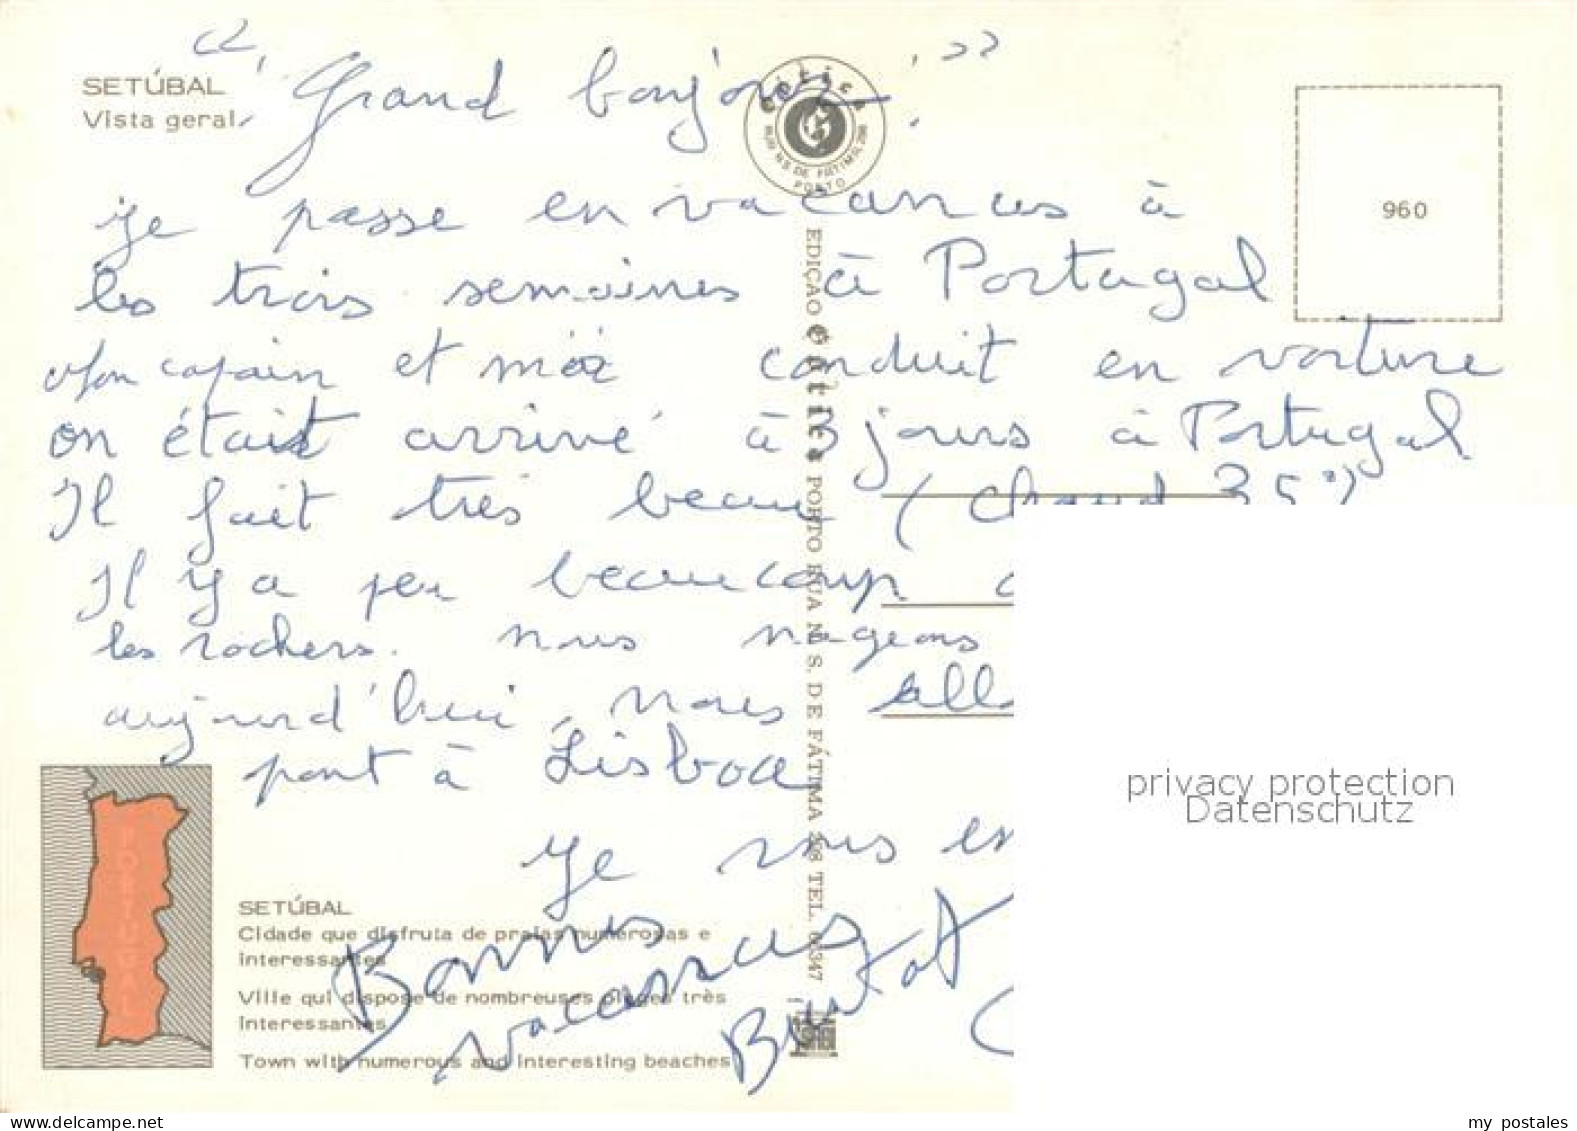 SETÚBAL
Vista geral
“ Grand bonjour ! ”
Gótica
PORTO
960
Je passe en vacances à
les trois semaines à Portugal
Mon copain et moi conduit en voiture
on était arrivé à 3 jours à Portugal
Il fait très beau ( chaud 35°)
Il y a peu beaucoup
les rochers. nous nageons
aujourd'hui, nous
pont à Lisboa
Je vous
Bonnes
vacances
EDIÇAO Gótica PORTO RUA N. S. DE FÁTIMA TEL.
SETÚBAL
Cidade que disfruta de praias numerosas e
interessantes
Ville qui dispose de nombreuses plages très
interessantes
Town with numerous and interesting beaches
PORTUGAL
privacy protection
Datenschutz
www.delcampe.net
my postales